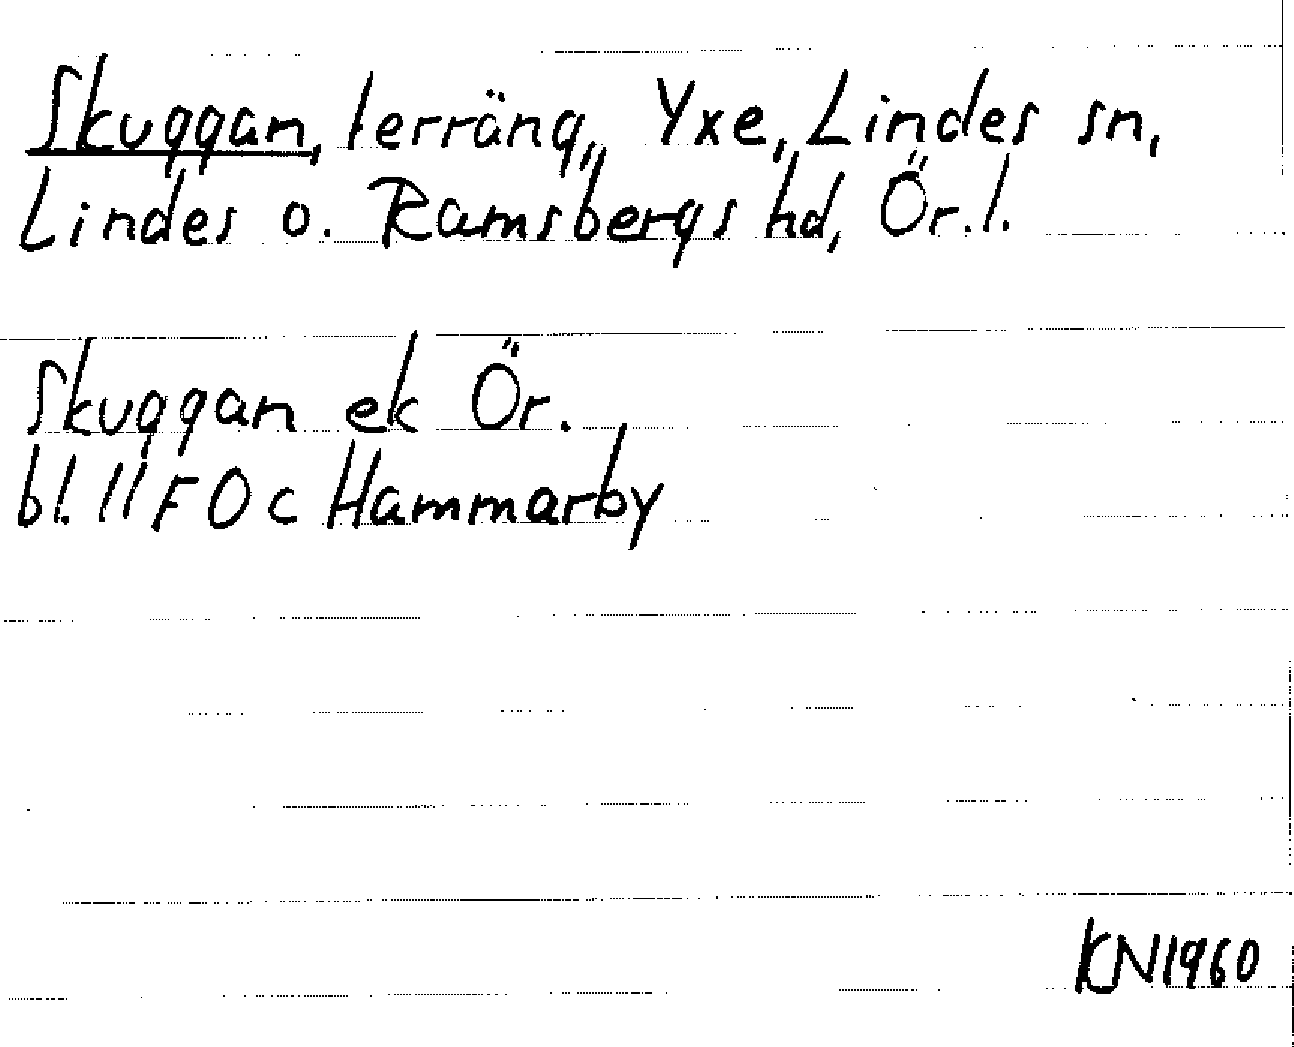 Skuggan, terräng,, Yxe,, Lindes sn,
Lindes o. Ramsbergs hd, Ör.l.
Skuggan ek Ör.
bl. 11F0c Hammarby
KN1960